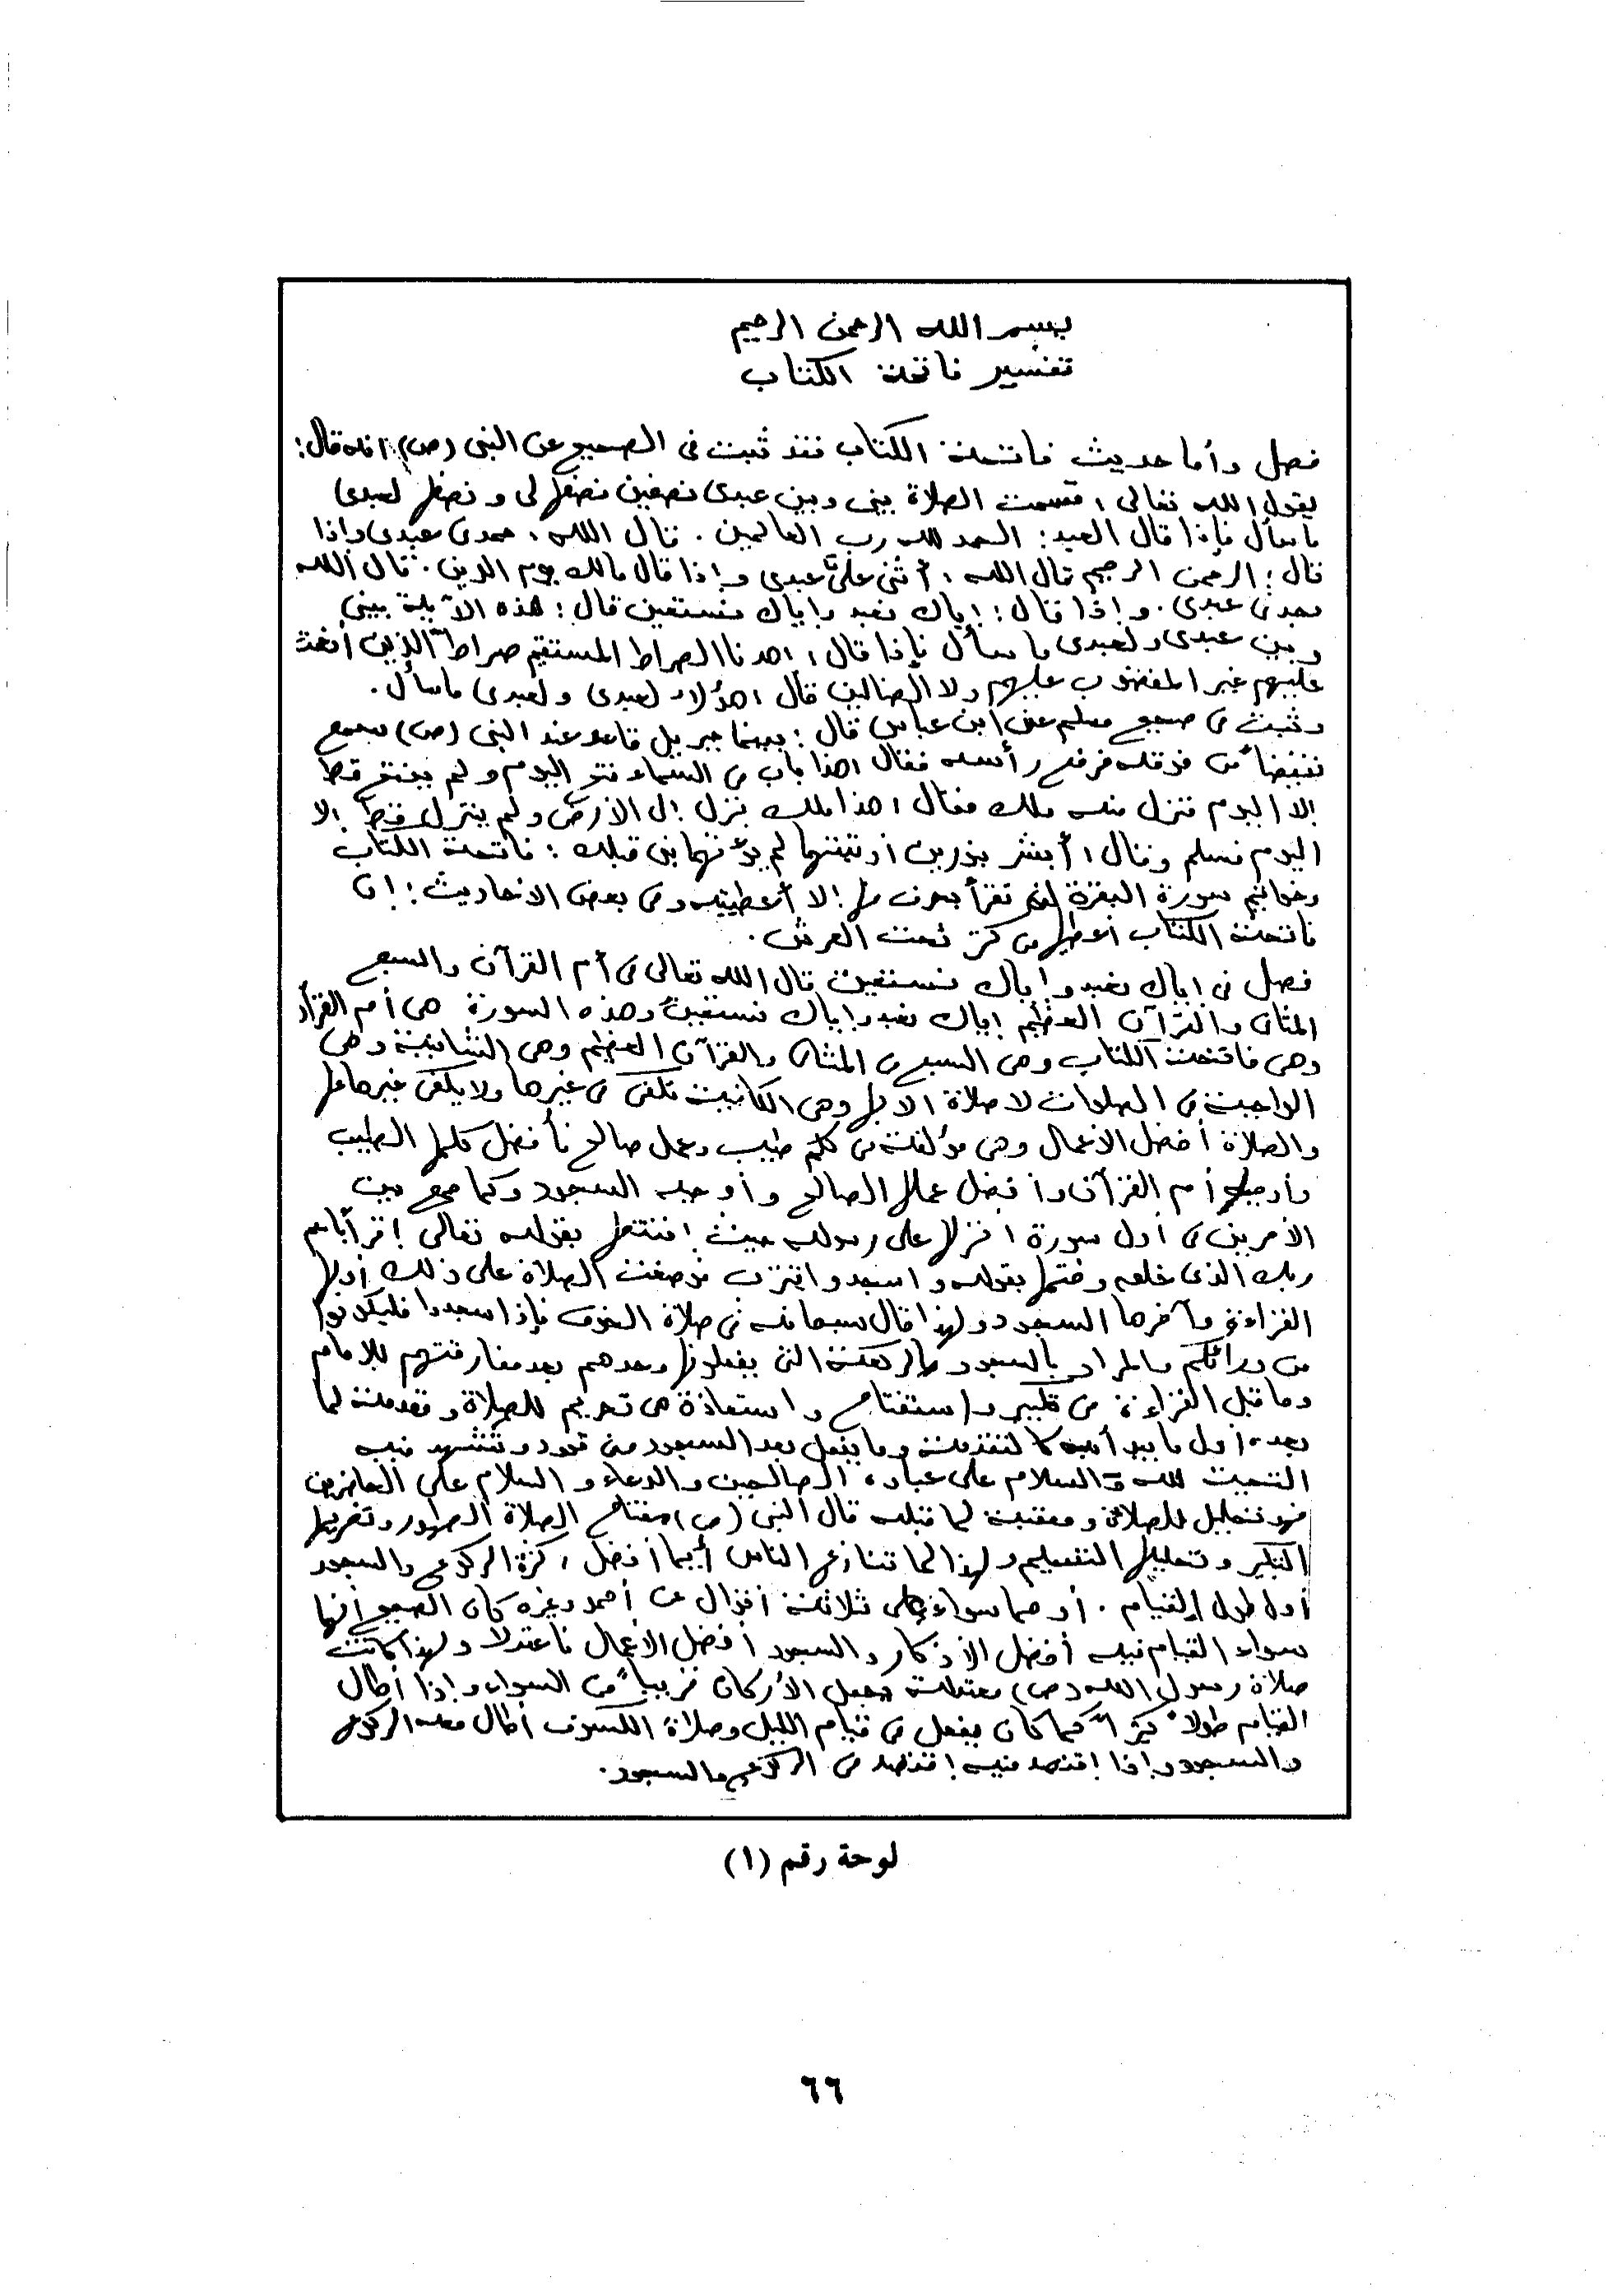 بسم الله الرحمن الرحيم
تفسير فاتحة الكتاب
فصل وأما حديث فاتحة الكتاب فقد ثبت فى الصحيح عن النبى (ص) انه قال:
يقول الله تعالى ، قسمت الصلاة بينى وبين عبدى نصفين نصفها لى ونصفها لعبدى
ما سأل فإذا قال العبد: الحمد لله رب العالمين . قال الله ، حمدنى عبدى وإذا
قال : الرحمن الرحيم قال الله ، أثنى علىّ عبدى وإذا قال مالك يوم الدين . قال الله
مجدنى عبدى . وإذا قال : إياك نعبد وإياك نستعين قال : هذه الآية بينى
وبين عبدى ولعبدى ما سأل فإذا قال ، اهدنا الصراط المستقيم صراط الذين أنعمت
عليهم غير المغضوب عليهم ولا الضالين قال ، هؤلاء لعبدى ولعبدى ما سأل .
وثبت فى صحيح مسلم عن ابن عباس قال : بينما جبريل قاعد عند النبى (ص) سمع
نقيضاً من فوقه فرفع رأسه فقال هذا باب من السماء فتح اليوم ولم يفتح قط
إلا اليوم فنزل منه ملك فقال ، هذا ملك نزل إلى الارض ولم ينزل قط إلا
اليوم فسلم وقال ، أبشر بنورين أوتيتهما لم يؤتهما نبى قبلك : فاتحة الكتاب
وخواتيم سورة البقرة لن تقرأ بحرف منها إلا أعطيته وفى بعض الاحاديث : إن
فاتحة الكتاب أعطيها من كنز تحت العرش .
فصل فى إياك نعبد وإياك نستعين قال الله تعالى فى أم القرآن والسبع
المثانى والقرآن العظيم إياك نعبد وإياك نستعين وهذه السورة هى أم القرآن
وهى فاتحة الكتاب وهى السبع من المثانى والقرآن العظيم وهى الشافية وهى
الواجبة فى الصلوات لا صلاة الا بها وهى الكافية تكفى من غيرها ولا يكفى غيرها عنها
والصلاة أفضل الاعمال وهى مؤلفة من كلم طيب وعمل صالح فأفضل كلمها الطيب
وأوجبه أم القرآن وأفضل عملها الصالح وأوجبه السجود وكما جمع بين
الأمرين فى أول سورة أنزلها على رسوله حيث افتتحها بقوله تعالى إقرأ باسم
ربك الذى خلق وختمها بقوله واسجد واقترب فوضعت الصلاة على ذلك أولها
القراءة وآخرها السجود ولهذا قال سبحانه فى صلاة الخوف فإذا سجدوا فليكونوا
من ورائكم والمراد بالسجود الركعة التى يفعلونها وحدهم بعد مفارقتهم للإمام
وما قبل القراءة من تكبير واستفتاح واستعاذة هى تحريم للصلاة ومقدمة لما
بعده أول ما يبدأ به كالتقدمة وما يفعل بعد السجود من قعود وتشهد فيه
التحيت لله والسلام على عباده الصالحين والدعاء والسلام على الحاضرين
فهو تحليل للصلاة ومعقبة لما قبله قال النبى (ص) مفتاح الصلاة الطهور وتحريمها
التكبير وتحليلها التسليم ولهذا لما تنازع الناس أيما أفضل ، كثرة الركوع والسجود
أو طول القيام . أو هما سواء على ثلاثة أقوال عن أحمد وغيره كان الصحيح أنها
سواء القيام فيه أفضل الأذكار والسجود أفضل الأعمال فاعتدلا ولهذا كانت
صلاة رسول الله (ص) معتدلة يجعل الأركان قريباً من السواء وإذا أطال
القيام طولاً كثيراً كما كان يفعل فى قيام الليل وصلاة الكسوف أطال معه الركوع
والسجود وإذا إقتصد فيه إقتصد فى الركوع والسجود .
لوحة رقم (١)
٦٦